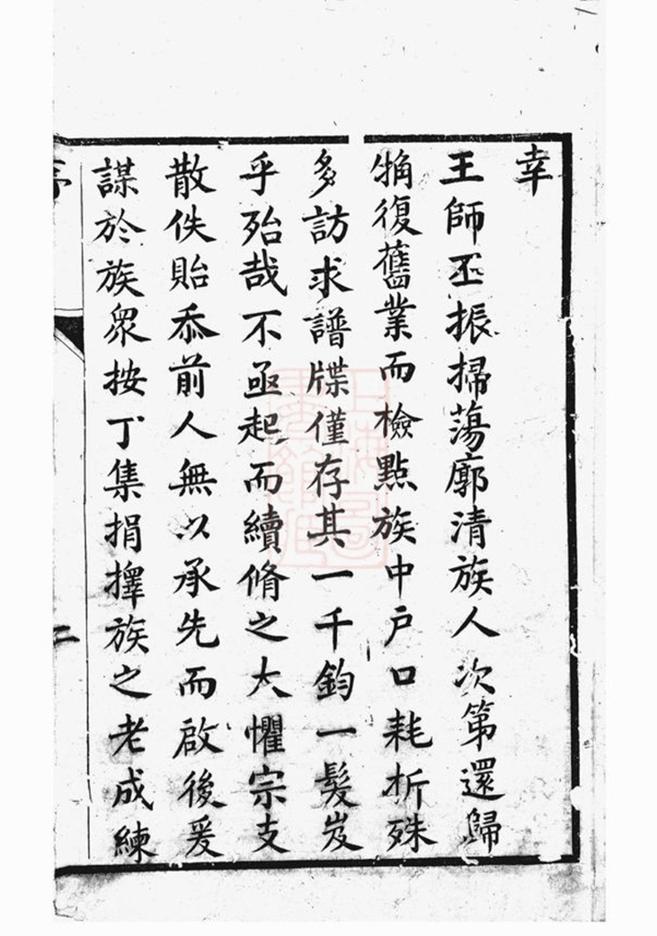 幸
王師丕振掃蕩廓清族人次第還歸
觕復舊業而檢點族中戶口耗折殊
多訪求譜牒僅存其一千鈞一髮岌
乎殆哉不亟起而續脩之大懼宗支
散佚貽忝前人無以承先而啟後爰
謀於族眾按丁集捐擇族之老成練
序
二